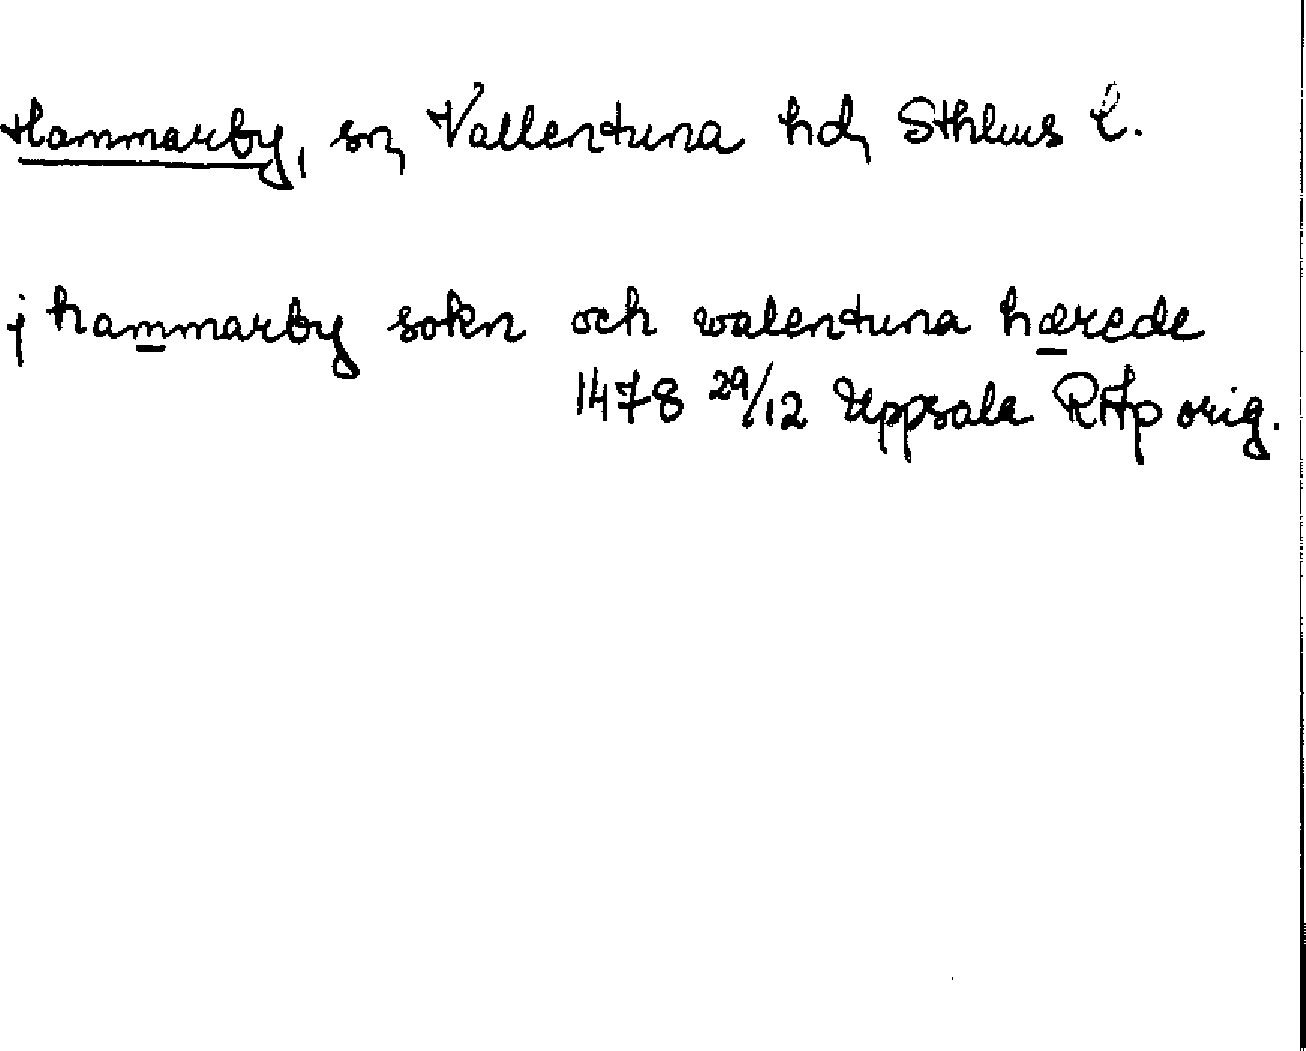 Hammarby, sn, Vallentuna hd, Sthlms l.
j hammarby sokn och walentuna hærede
1478 29/12 Uppsala RAp orig.